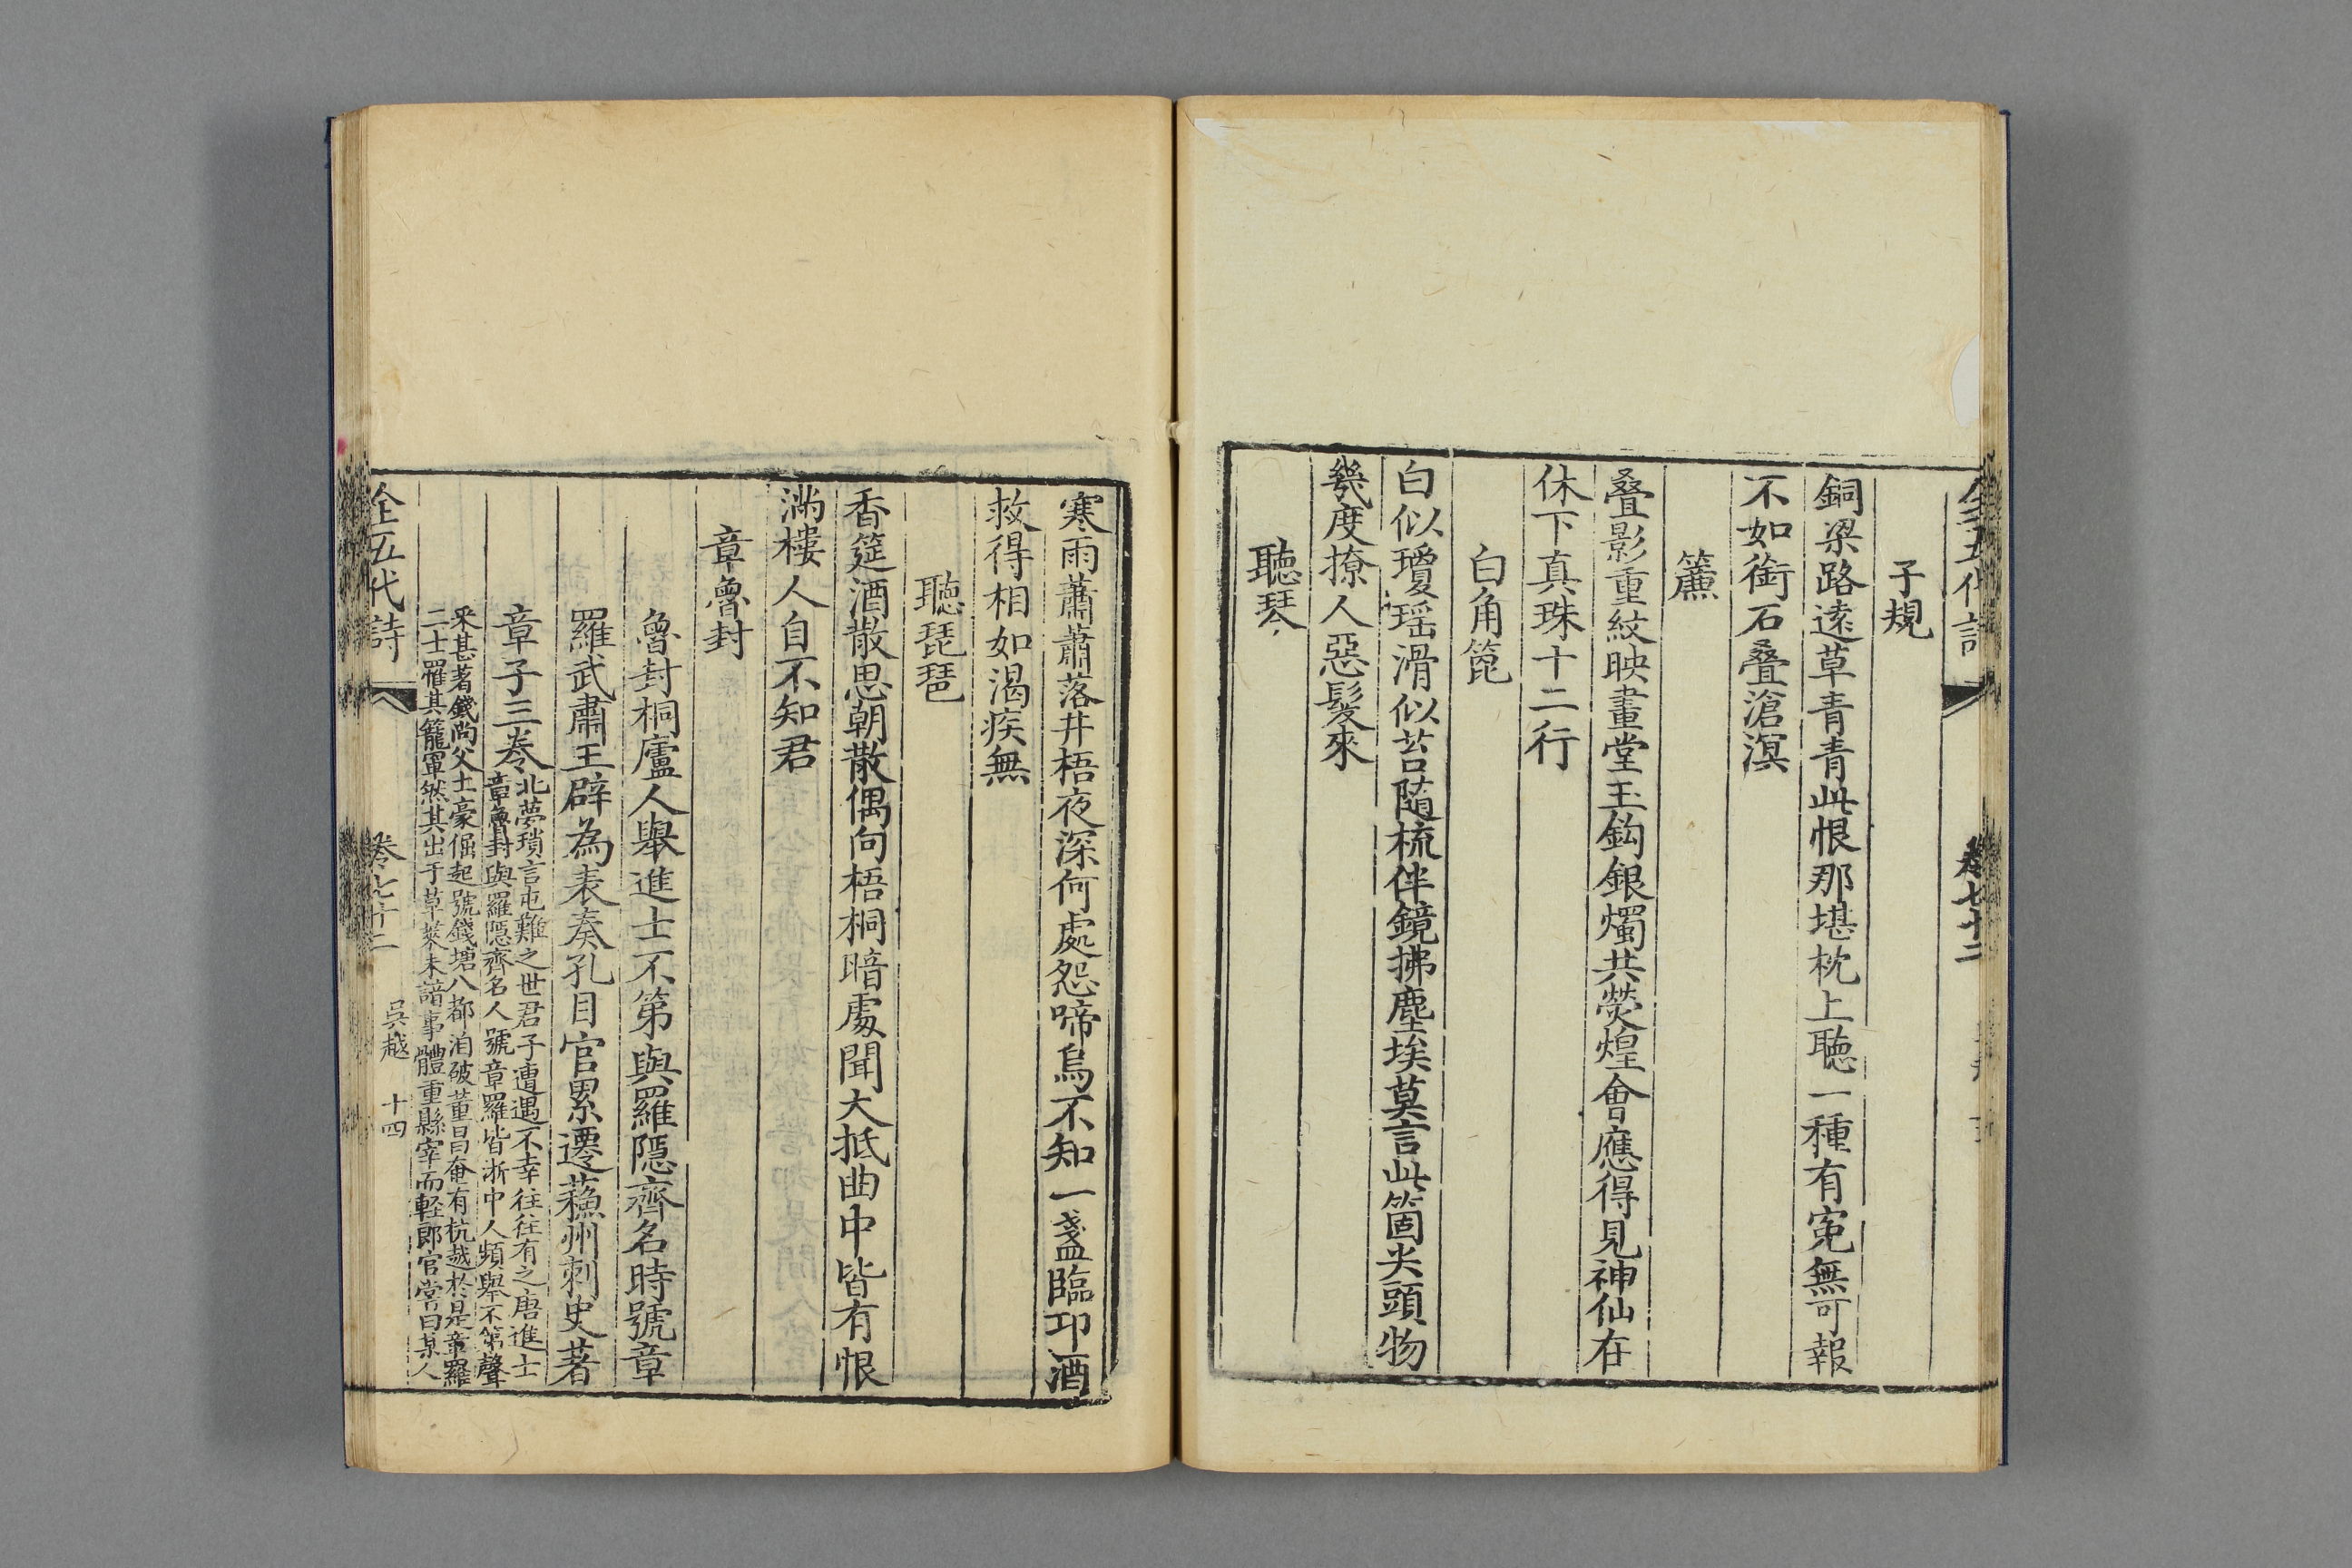 子規
銅梁路遠草青青此恨那堪枕上聽一種有寃無可報
不如銜石叠滄溟
簾
叠影重紋映畫堂玉鈎銀燭共熒煌會應得見神仙在
休下真珠十二行
白角篦
白似瓊瑶滑似苔隨梳伴鏡拂塵埃莫言此箇尖頭物
幾度撩人惡髮來
聽琴
寒雨蕭蕭落井梧夜深何處怨啼烏不知一盞臨卭酒
救得相如渴疾無
聽琵琶
香筵酒散思朝散偶向梧桐暗處聞大抵曲中皆有恨
滿樓人自不知君
章魯封
魯封桐廬人舉進士不第與羅隱齊名時號章
羅武肅王辟為表奏孔目官累遷蘓州刺史著
章子三卷
北夢瑣言屯難之世君子遭遇不幸往往有之唐進士
章魯封與羅隱齊名人號章羅皆浙中人頻舉不第聲
采甚著錢尚父土豪倔起號錢塘八都洎破董昌奄有杭越於是章羅
二士罹其籠罩然其出于草萊未諳事體重縣宰而輕郎官嘗曰某人
全五代詩
卷七十二
吳越
十四